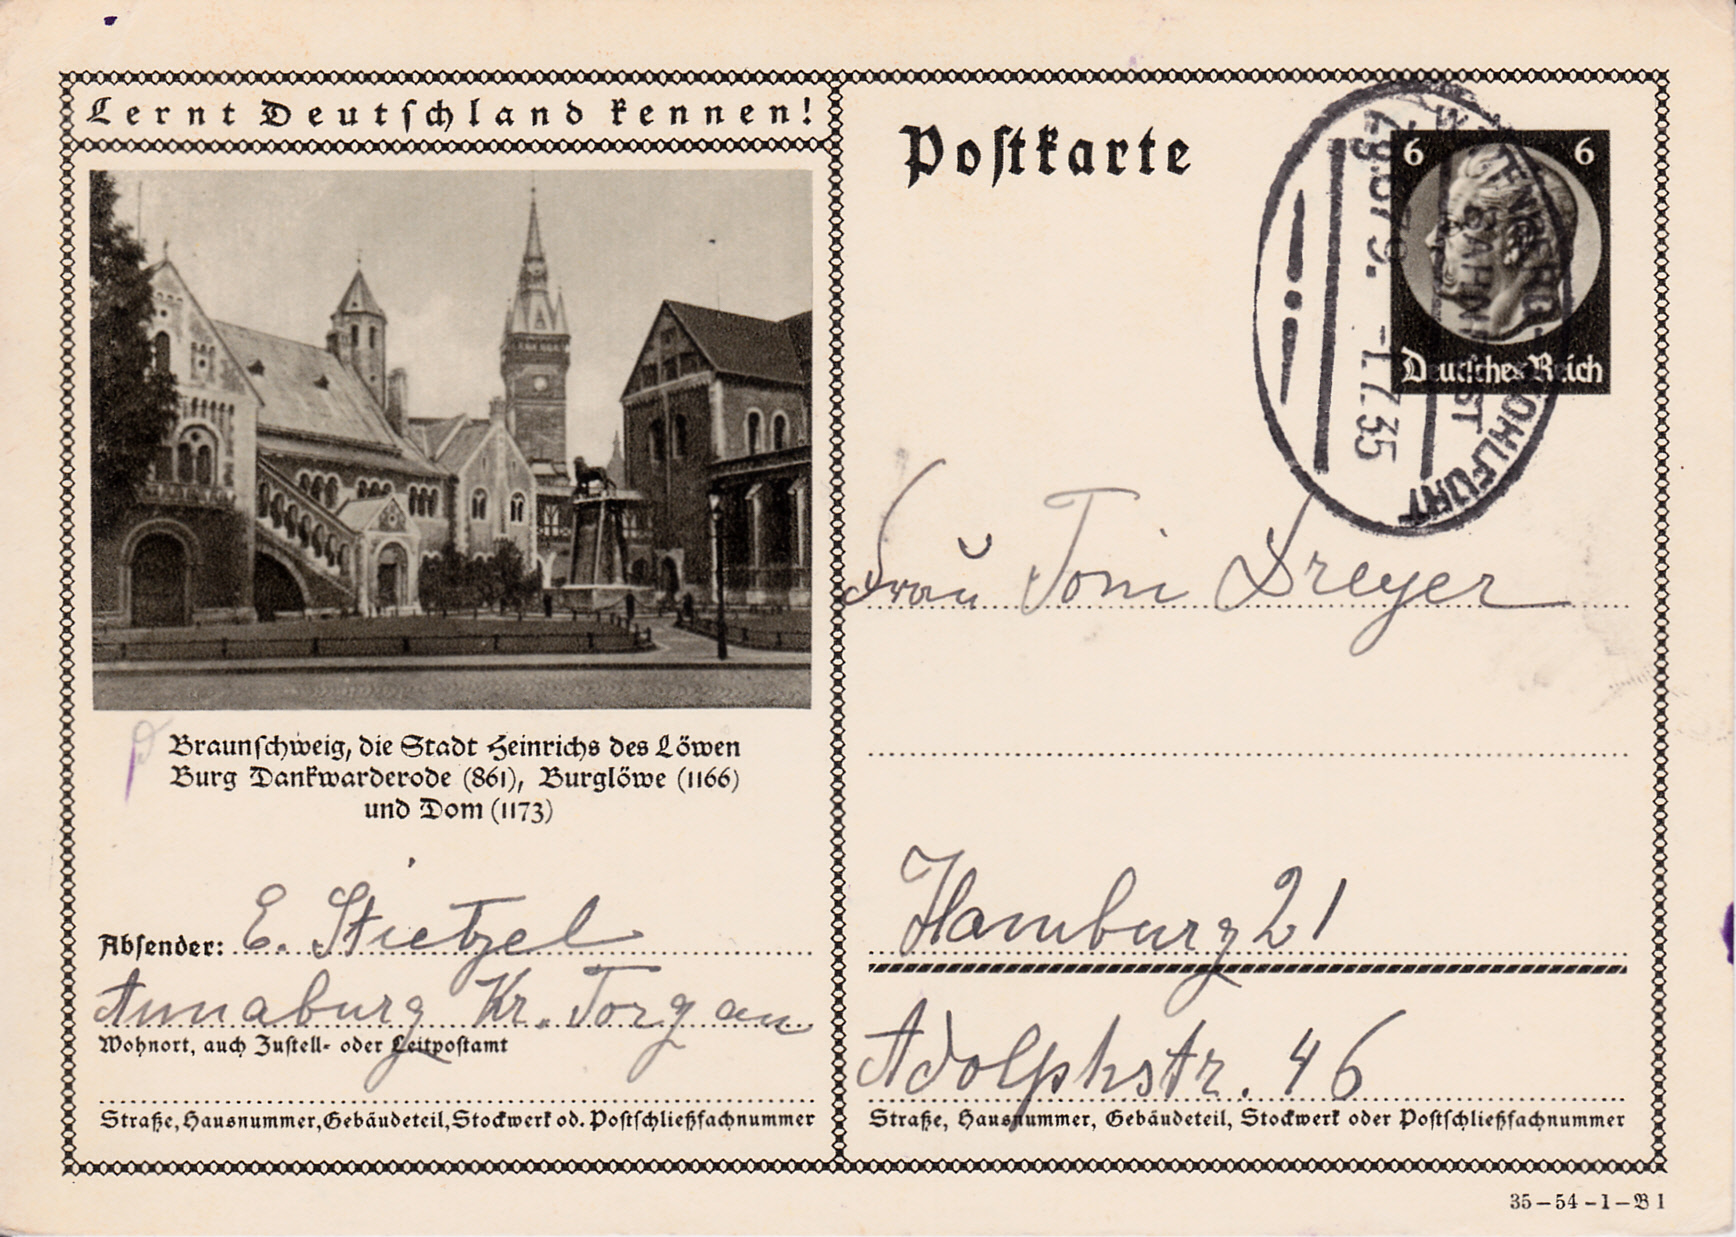 Lernt Deutschland kennen!
Braunschweig, die Stadt Heinrichs des Löwen
Burg Dankwarderode (861), Burglöwe (1166)
und Dom (1173)
Absender: E. Stietzel
Annaburg Kr. Torgau
Wohnort, auch Zustell- oder Leitpostamt
Straße, Hausnummer, Gebäudeteil, Stockwerk od. Postschließfachnummer
Postkarte
6 6
Deutsches Reich
KOHLFURT
BAHNPOST
Zg.67 9. -1.7.35
Frau Toni Dreyer
Hamburg 21
Adolphstr. 46
Straße, Hausnummer, Gebäudeteil, Stockwerk oder Postschließfachnummer
35-54-1-B 1